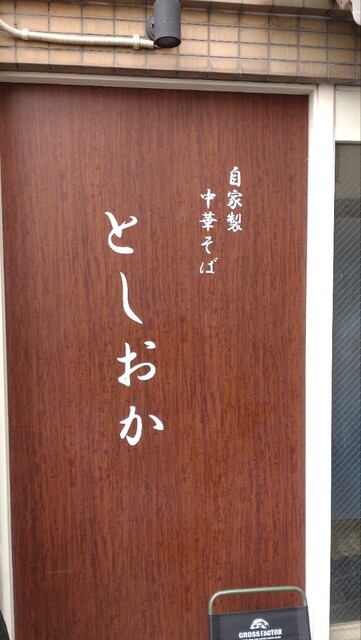 自家製
中華そば
としおか
CROSS FACTOR